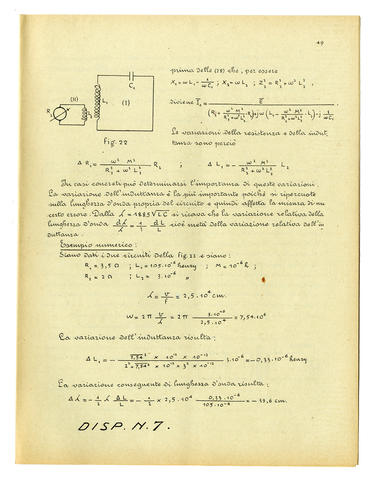 49
prima delle (28) che, per essere
X₁ = ωL₁ - 1/ωC₁ ; X₂ = ωL₂ ; Z₂² = R₂² + ω² L₂²
diviene
Le variazioni della resistenza e della indut-
tanza sono perciò
C₁
(II)
L₁
(I)
Fig. 22
Δ R₁ = ω² M² / R₂² + ω² L₂² R₂ ; Δ L₁ = - ω² M² / R₂² + ω² L₂² L₂
In casi concreti può determinarsi l'importanza di queste variazioni.
La variazione dell'induttanza è la più importante poiché si ripercuote
sulla lunghezza d'onda propria del circuito e quindi affetta la misura di un
certo errore. Dalla λ = 1885 √LC si ricava che la variazione relativa della
lunghezza d'onda dλ/λ = 1/2 dL/L cioè metà della variazione relativa dell'in
duttanza.
Esempio numerico:
Siano dati i due circuiti della fig. 22 e siano:
R₁ = 3,5 Ω ; L₁ = 105·10⁻⁶ henry ; M = 10⁻⁶ h ;
R₂ = 2 Ω ; L₂ = 3·10⁻⁶
λ = v/f = 2,5·10⁴ cm.
W = 2π v/λ = 2π 3·10¹⁰ / 2,5·10⁴ = 7,54·10⁶
La variazione dell'induttanza risulta:
3·10⁻⁶ = -0,33·10⁻⁶ henry
La variazione conseguente di lunghezza d'onda risulta:
Δλ = - 1/2 λ ΔL/L = - 1/2 × 2,5·10⁴ 0,33·10⁻⁶ / 105·10⁻⁶ = - 39,6 cm.
DISP. N. 7.